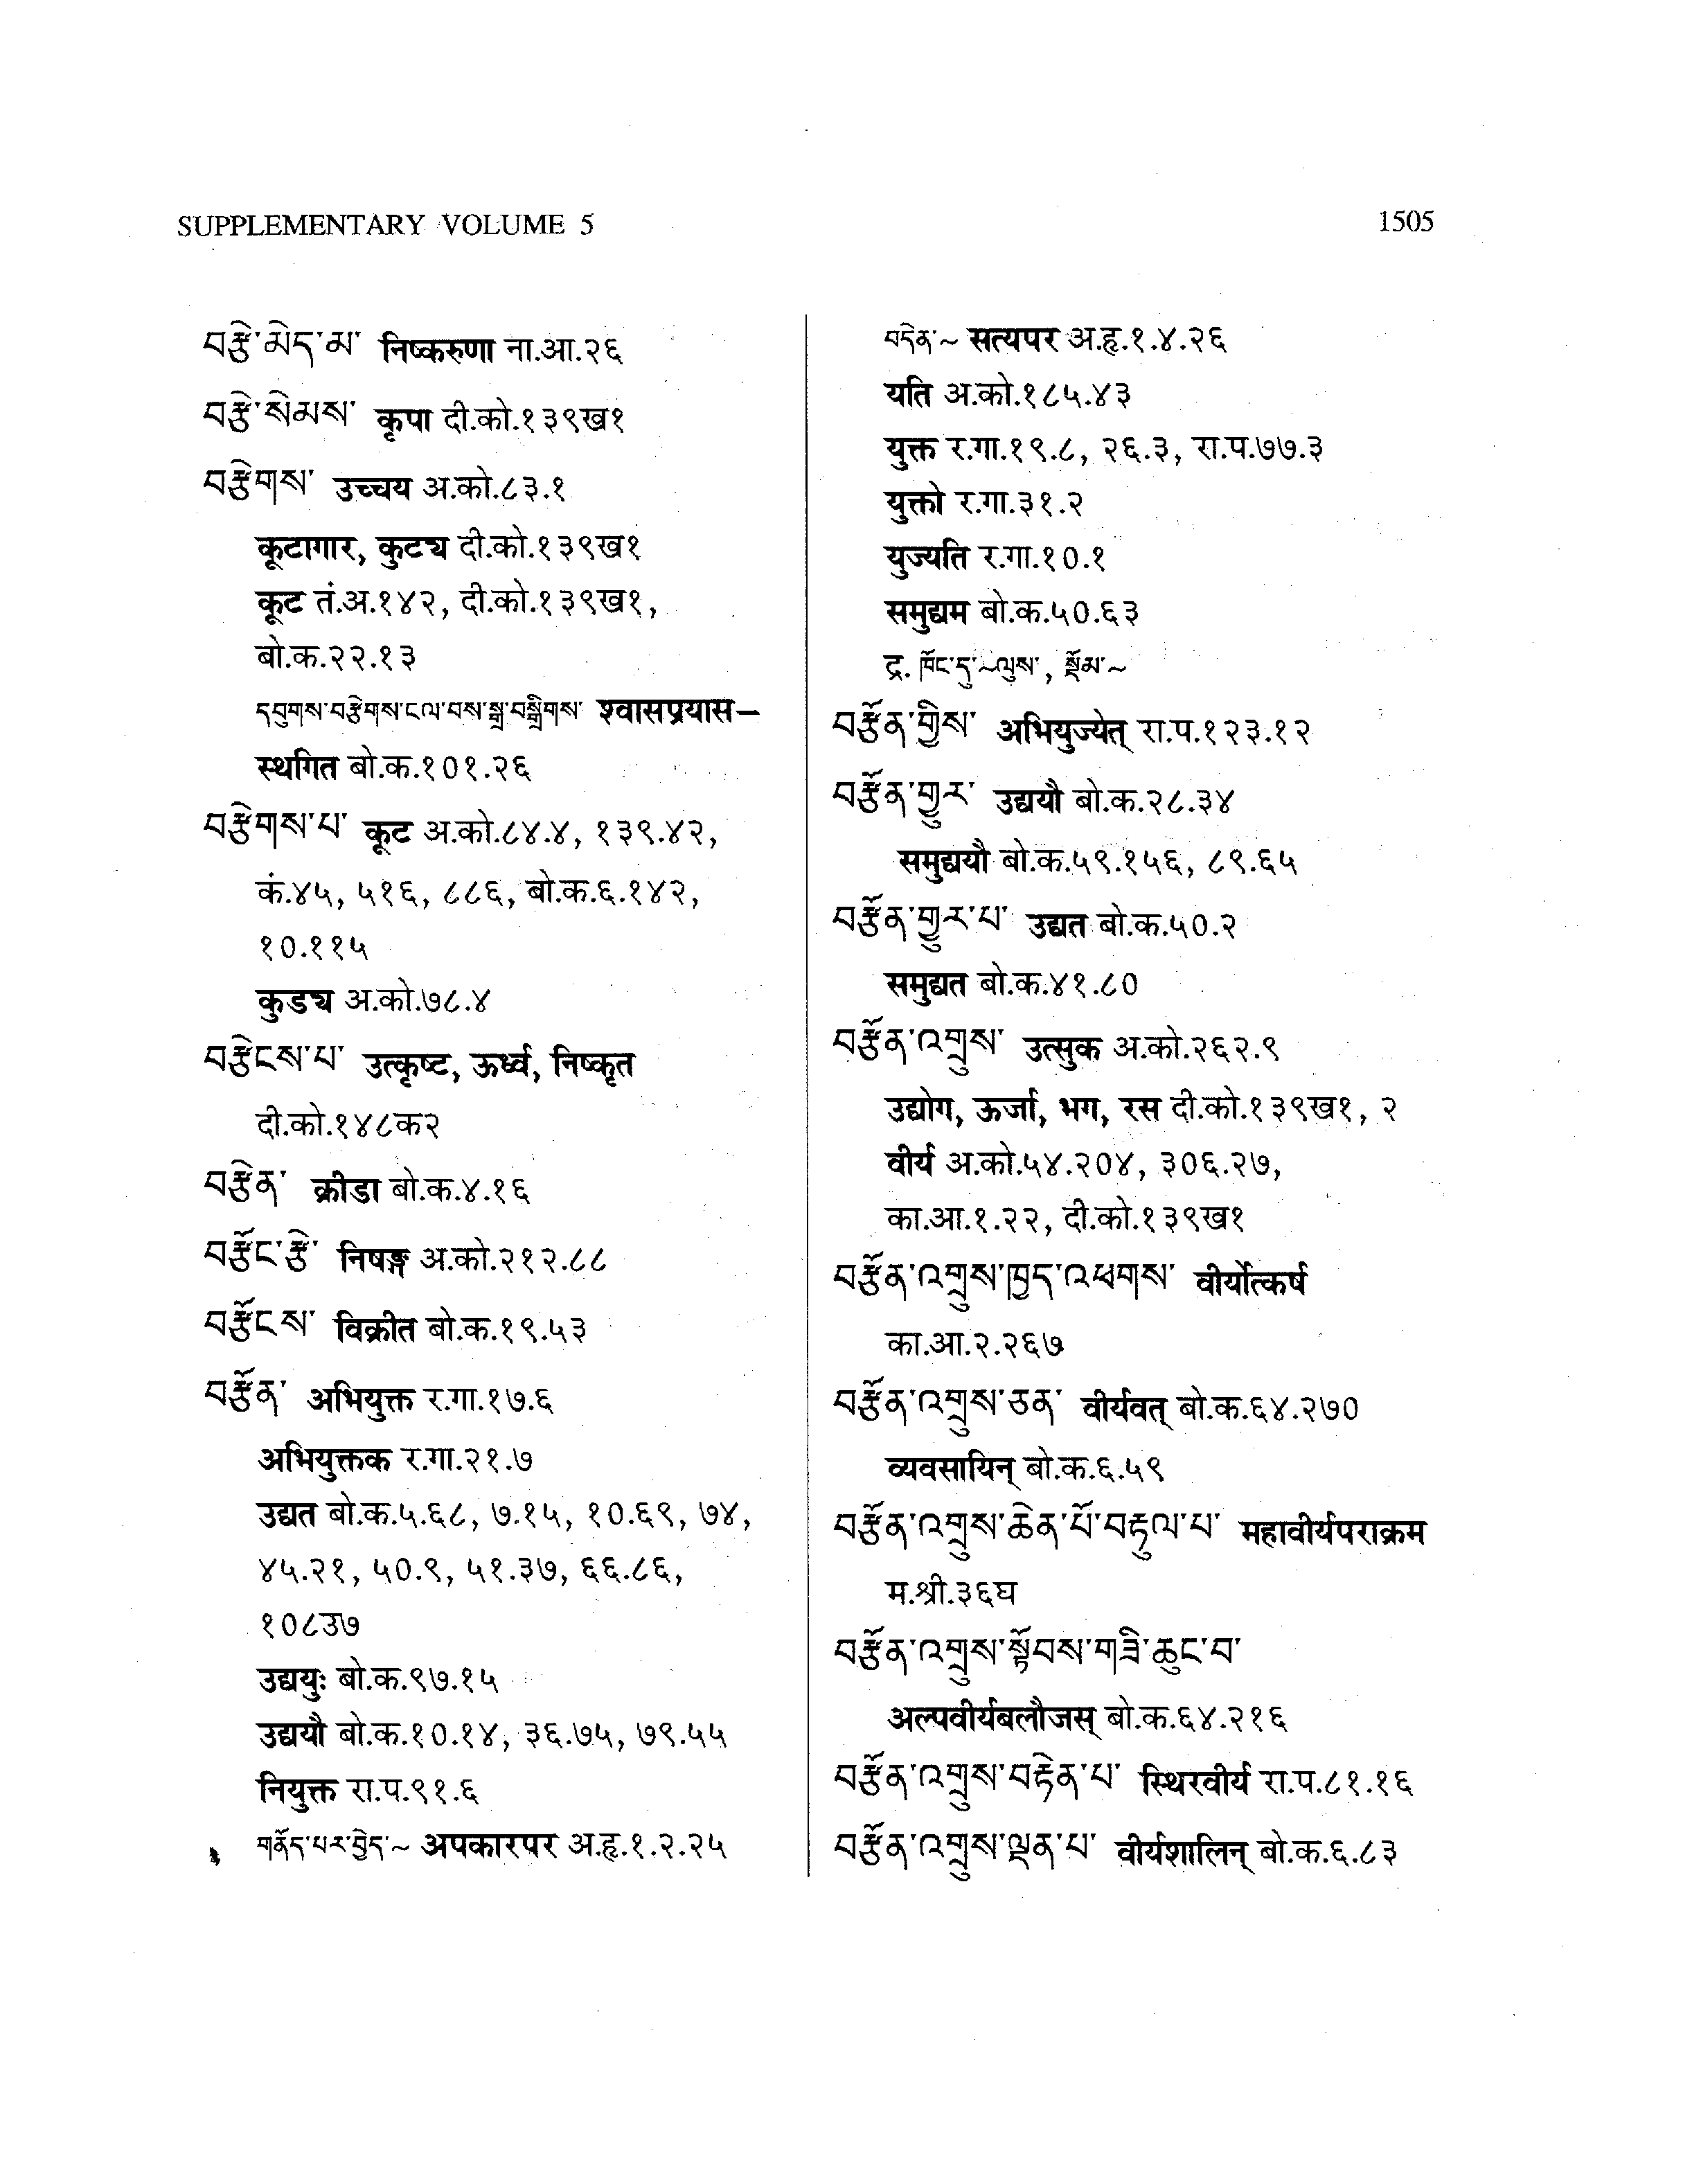 SUPPLEMENTARY VOLUME 5
1505
བརྩེ་མེད་མ་ निष्करुणा ना.आ.२६
བརྩེ་སེམས་ कृपा दी.को.१३९ख१
བརྩེགས་ उच्चय अ.को.८३.१
कूटागार, कुट्य दी.को.१३९ख१
कूट तं.अ.१४२, दी.को.१३९ख१,
बो.क.२२.१३
དབུགས་བརྩེགས་ངལ་བས་སྒྲ་བསྒྲིགས་ श्वासप्रयास–
स्थगित बो.क.१०१.२६
བརྩེགས་པ་ कूट अ.को.८४.४, १३९.४२,
कं.४५, ५१६, ८८६, बो.क.६.१४२,
१०.११५
कुड्य अ.को.७८.४
བརྩེངས་པ་ उत्कृष्ट, ऊर्ध्व, निष्कृत
दी.को.१४८क२
བརྩེན་ क्रीडा बो.क.४.१६
བརྩོང་རྩེ་ निषङ्ग अ.को.२१२.८८
བརྩོངས་ विक्रीत बो.क.१९.५३
བརྩོན་ अभियुक्त र.गा.१७.६
अभियुक्तक र.गा.२१.७
उद्यत बो.क.५.६८, ७.१५, १०.६९, ७४,
४५.२१, ५०.९, ५१.३७, ६६.८६,
१०८उ७
उद्ययुः बो.क.९७.१५
उद्ययौ बो.क.१०.१४, ३६.७५, ७९.५५
नियुक्त रा.प.९१.६
གནོད་པར་བྱེད་~ अपकारपर अ.हृ.१.२.२५
བདེན་~ सत्यपर अ.हृ.१.४.२६
यति अ.को.१८५.४३
युक्त र.गा.१९.८, २६.३, रा.प.७७.३
युक्तो र.गा.३१.२
युज्यति र.गा.१०.१
समुद्यम बो.क.५०.६३
द्र. ཁོང་དུ་~ལུས་, སྡོམ་~
བརྩོན་གྱིས་ अभियुज्येत् रा.प.१२३.१२
བརྩོན་གྱུར་ उद्ययौ बो.क.२८.३४
समुद्ययौ बो.क.५९.१५६, ८९.६५
བརྩོན་གྱུར་པ་ उद्यत बो.क.५०.२
समुद्यत बो.क.४१.८०
བརྩོན་འགྲུས་ उत्सुक अ.को.२६२.९
उद्योग, ऊर्जा, भग, रस दी.को.१३९ख१, २
वीर्य अ.को.५४.२०४, ३०६.२७,
का.आ.१.२२, दी.को.१३९ख१
བརྩོན་འགྲུས་ཁྱད་འཕགས་ वीर्योत्कर्ष
का.आ.२.२६७
བརྩོན་འགྲུས་ཅན་ वीर्यवत् बो.क.६४.२७०
व्यवसायिन् बो.क.६.५९
བརྩོན་འགྲུས་ཆེན་པོ་བརྟུལ་པ་ महावीर्यपराक्रम
म.श्री.३६घ
བརྩོན་འགྲུས་སྟོབས་གཟི་ཆུང་བ་
अल्पवीर्यबलौजस् बो.क.६४.२१६
བརྩོན་འགྲུས་བརྟེན་པ་ स्थिरवीर्य रा.प.८१.१६
བརྩོན་འགྲུས་ལྡན་པ་ वीर्यशालिन् बो.क.६.८३